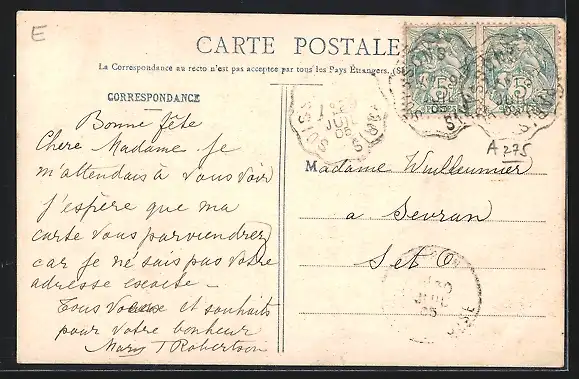 E
CARTE POSTALE
La Correspondance au recto n'est pas acceptée par tous les Pays Étrangers.
CORRESPONDANCE
Bonne fête
Chere Madame je
m'attendais à vous voir
J'espère que ma
carte vous parviendrez
car je ne sais pas votre
adresse exacte -
Tous voeux et souhaits
pour votre bonheur
Mary T Robertson
A 275
Madame Wuilleumier
a Sevran
S et O
JUIL
05
JUIL
05
5c
5c